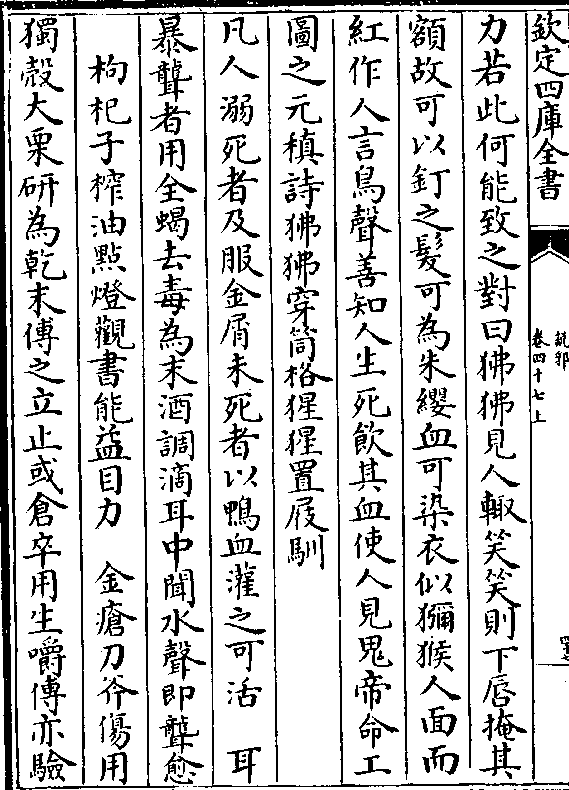 欽定四庫全書
說郛
卷四十七上
力若此何能致之對曰狒狒見人輙笑笑則下唇掩其
額故可以釘之髮可為朱纓血可染衣似獼猴人面而
紅作人言鳥聲善知人生死飲其血使人見鬼帝命工
圖之元稹詩狒狒穿筒格猩猩置屐馴
凡人溺死者及服金屑未死者以鴨血灌之可活　耳
暴聾者用全蝎去毒為末酒調滴耳中聞水聲即聾愈
枸杞子榨油點燈觀書能益目力　金瘡刀斧傷用
獨殼大栗研為乾末傅之立止或倉卒用生嚼傅亦驗